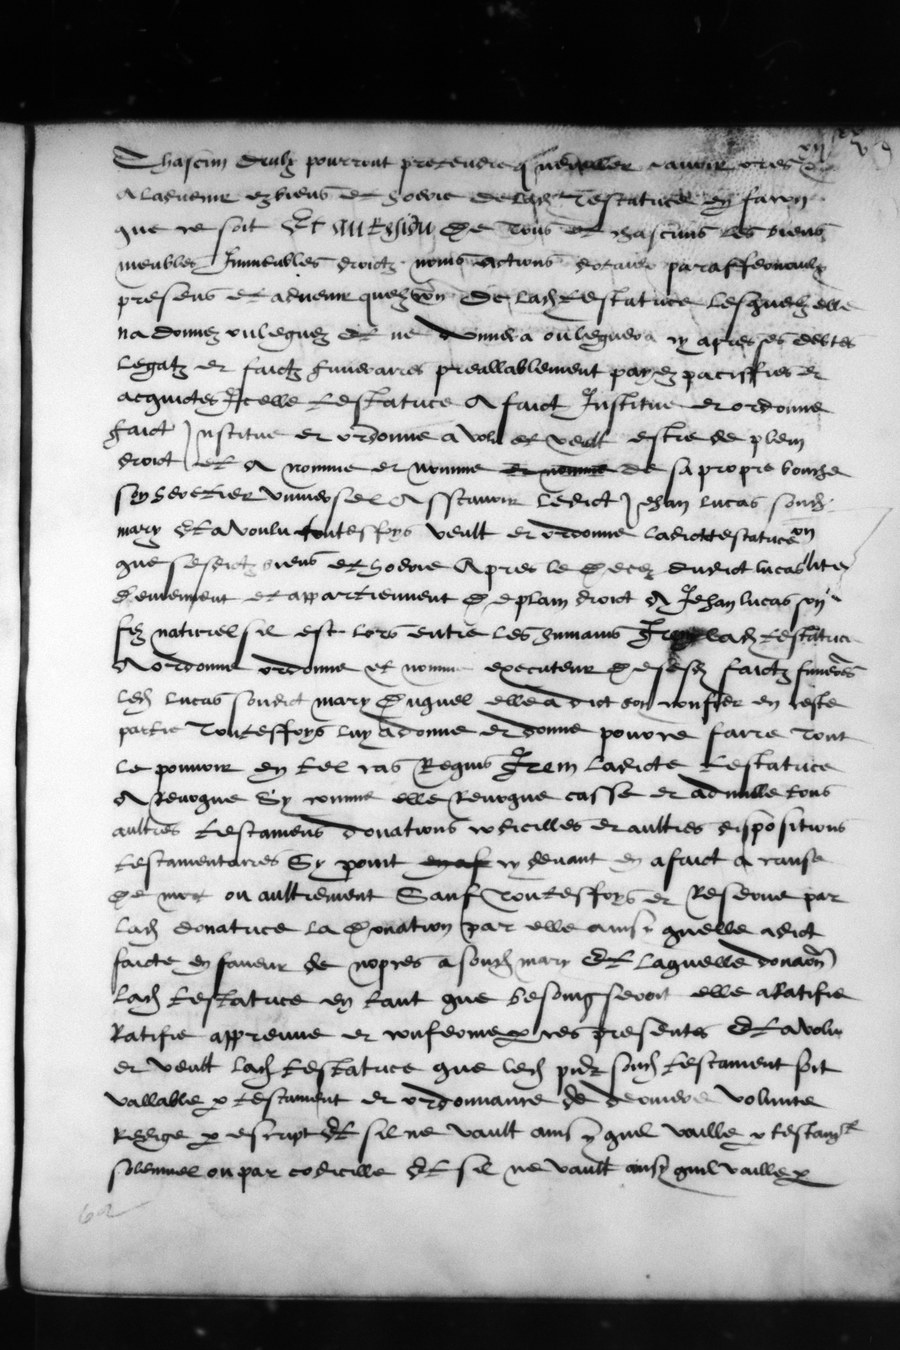 Chascun deulx pourront pretendre quereller avoir ores
A ladvenir ez biens et hoirie de ladt Testatrice en facon
que ce soit Et au Residu De tous et chascuns les biens
meubles Immeubles droictz noms actions dotaulx paraffernaulx
presens et advenir quelzcon De lad testatrice lesquelz elle
na donnez ou leguez et ne donnera ou leguera cy apres ses debtes
Legatz et faictz funerarres preallablement payez paciffies et
acquictes Icelle testatrice A faict Institue et ordonne
faict Institue et ordonne a volu et veult estre de plein
droict et A nomme et nomme et nomme de sa propre bouche
son heretier universel Asscavoir ledict Jehan lucas sond
mary Et a voulu toutesfoys veult et ordonne ladicte testatrice
que sesdictz biens et hoirie Apres le Decez dudict lucas
Deviennent et appartiennent De plain droict A Jehan lucas son
filz naturel sil est lors entre les humains Item lad testatrice
A ordonne ordonne et nomme executeur De sesd faictz funeres
led lucas sondict mary Duquel elle a dict son confier en ceste
partie Toutesfoys luy a donne et donne pouvoir faire tout
le pouvoir en tel cas Requis Item ladicte testatrice
A Revoque Sy comme elle Revoque casse et adnulle tous
aultres testamens donations codicilles et aultres dispositions
testamentarres Sy point cy devant en a faict a cause
De mort ou aultrement Sauf Toutesfoys et Reserve par
lad donatrice la Donation par elle ainsy quelle a dict
faicte en faveur de nopces a sond mary Et laquelle donaon
lad testatrice en tant que besoing seroit elle a Ratifie
Ratifie appreuve et conferme p ces presentes Et a volu
et veult lad testatrice que led pnt sond testament soit
vallable p testament et ordonnance de derniere volunte
Redige p escript Et sil ne vault ainsy quil vaille p testamt
solennel ou par codicille Et sil ne vault ainsy quil vaille p
62